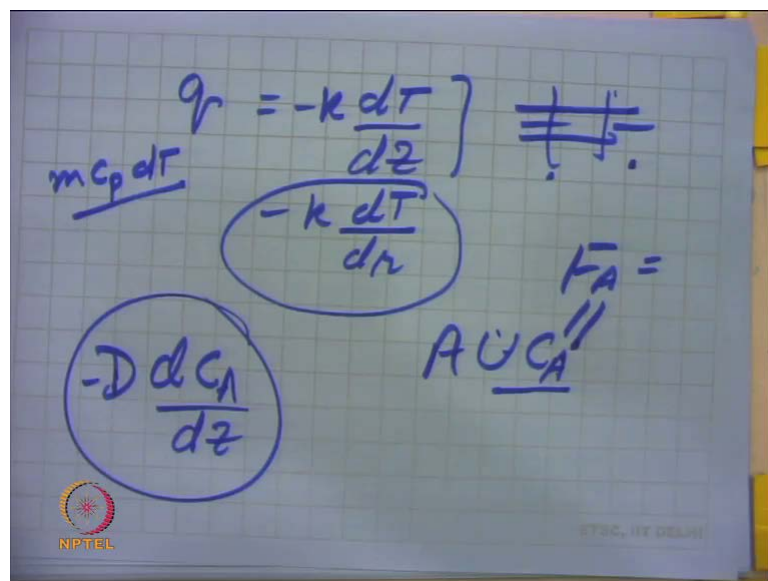 q = -k dT/dz
m cp dT
-k dT/dr
FA =
A U CA
-D dCA/dz
NPTEL
ETSC, IIT DELHI